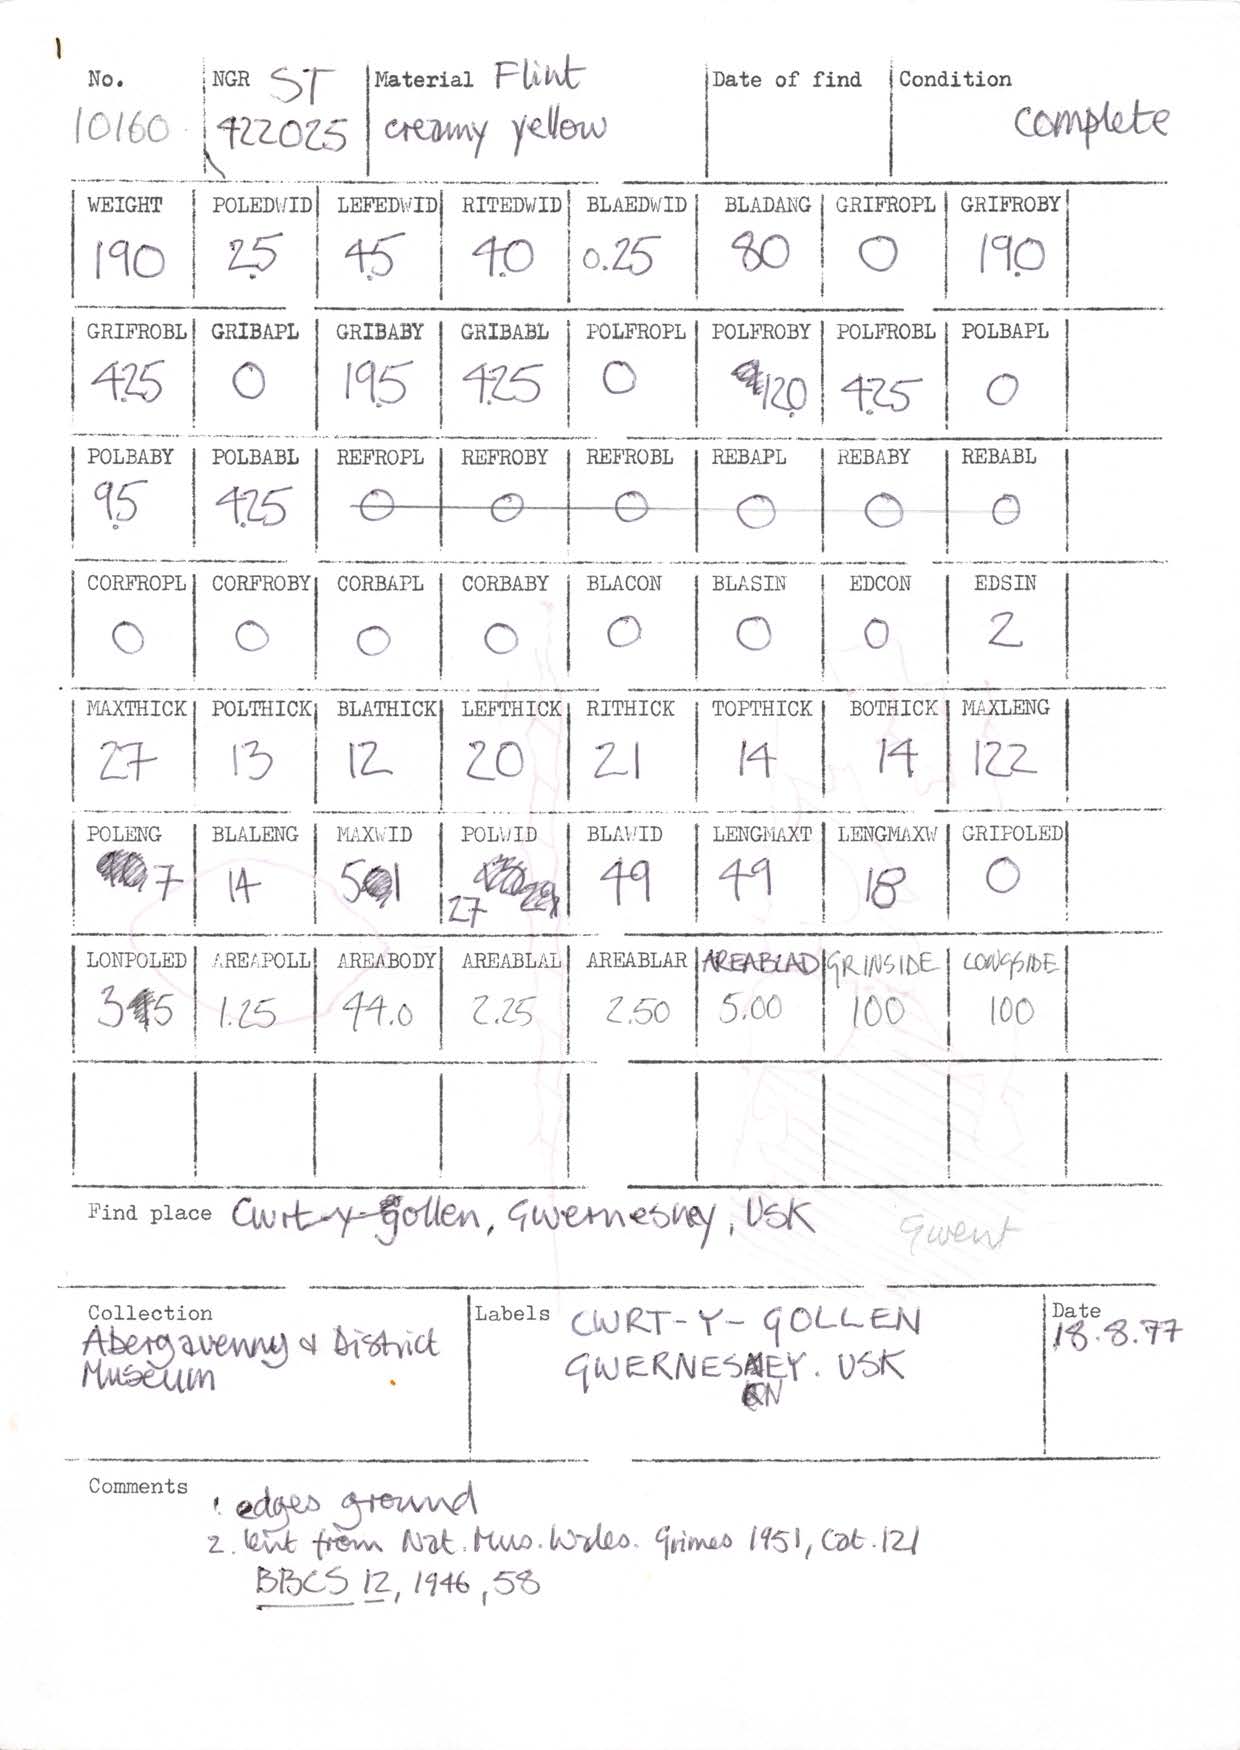 1
No. NGR ST Material Flint Date of find Condition
10160 422025 creamy yellow complete
WEIGHT POLEDWID LEFEDWID RITEDWID BLAEDWID BLADANG GRIFROPL GRIFROBY
190 2.5 4.5 4.0 0.25 80 0 19.0
GRIFROBL GRIBAPL GRIBABY GRIBABL POLFROPL POLFROBY POLFROBL POLBAPL
4.25 0 19.5 4.25 0 12.0 4.25 0
POLBABY POLBABL REFROPL REFROBY REFROBL REBAPL REBABY REBABL
9.5 4.25 0 0 0 0 0 0
CORFROPL CORFROBY CORBAPL CORBABY BLACON BLASIN EDCON EDSIN
0 0 0 0 0 0 0 2
MAXTHICK POLTHICK BLATHICK LEFTHICK RITHICK TOPTHICK BOTHICK MAXLENG
27 13 12 20 21 14 14 122
POLENG BLALENG MAXWID POLWID BLAWID LENGMAXT LENGMAXW GRIPOLED
7 14 51 27 49 49 18 0
LONPOLED AREAPOLL AREABODY AREABLAL AREABLAR AREABLAD GRINSIDE LONGSIDE
35 1.25 44.0 2.25 2.50 5.00 100 100
Find place Cwrt-y-gollen, Gwernesney, USK Gwent
Collection Labels CWRT-Y-GOLLEN Date
Abergavenny & District GWERNESNEY. USK 18.8.77
Museum N
Comments
1. edges ground
2. lent from Nat. Mus. Wales. Grimes 1951, Cat. 121
BBCS 12, 1946, 58